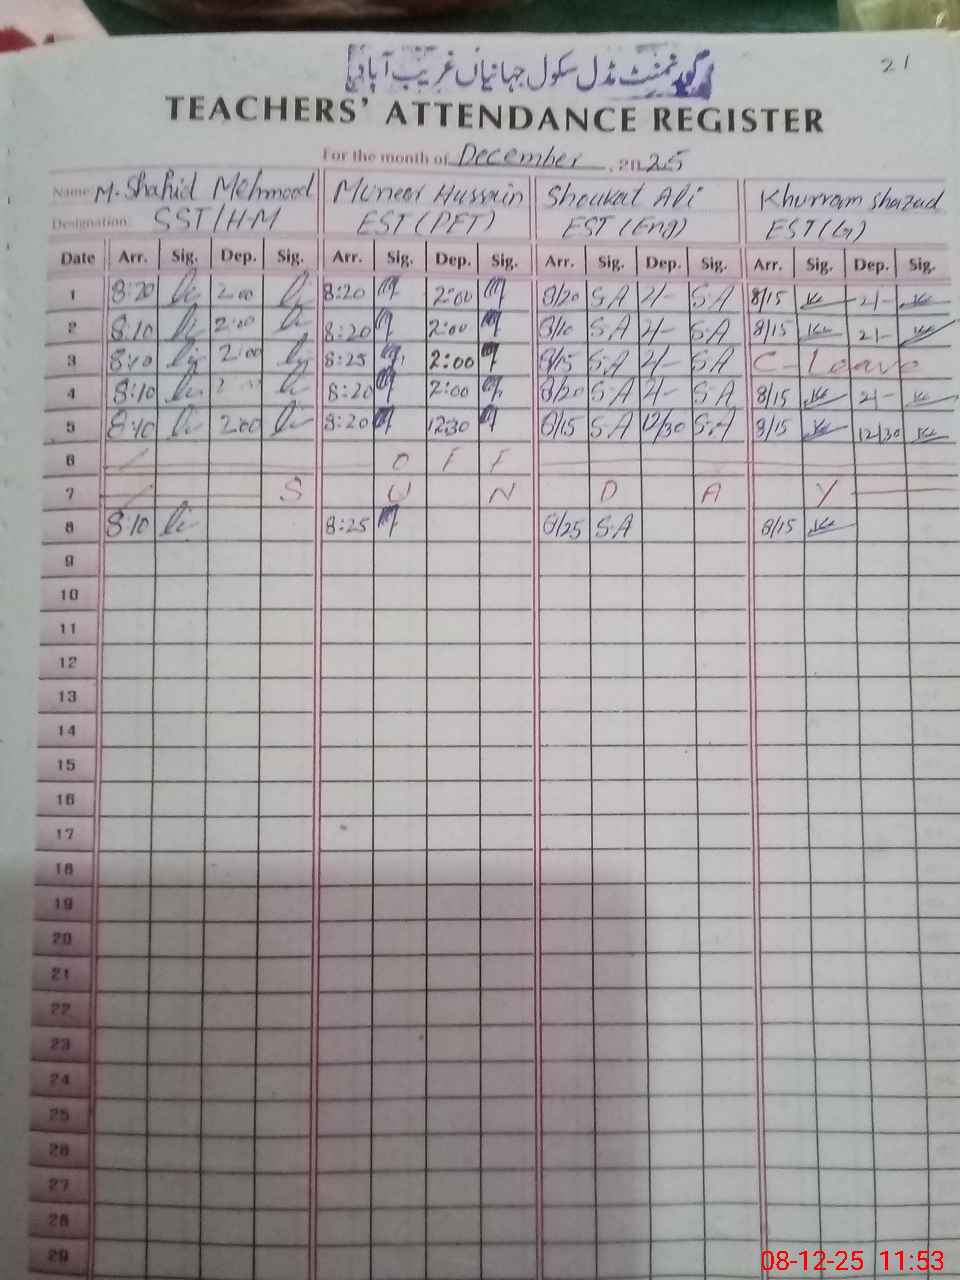 21
گورنمنٹ مڈل سکول جہانیاں غریب آباد
TEACHERS' ATTENDANCE REGISTER
For the month of December, 2025
Name M. Shahid Mehmood Muneer Hussain Shoukat Ali Khurram Shazad
Designation SST/HM EST(PET) EST(Eng) EST(G)
Date Arr. Sig. Dep. Sig. Arr. Sig. Dep. Sig. Arr. Sig. Dep. Sig. Arr. Sig. Dep. Sig.
1 8:20 2:00 8:20 2:00 8/20 S.A 2/- S.A 8/15 2/-
2 8:10 2:00 8:20 2:00 8/10 S.A 2/- S.A 8/15 2/-
3 8:10 2:00 8:25 2:00 8/15 S.A 2/- S.A C-Leave
4 8:10 8:20 2:00 8/20 S.A 2/- S.A 8/15 2/-
5 8:10 2:00 8:20 12:30 8/15 S.A 12/30 S.A 8/15 12/30
6 O F F
7 S U N D A Y
8 8:10 8:25 8/25 S.A 8/15
9
10
11
12
13
14
15
16
17
18
19
20
21
22
23
24
25
26
27
28
29
08-12-25 11:53